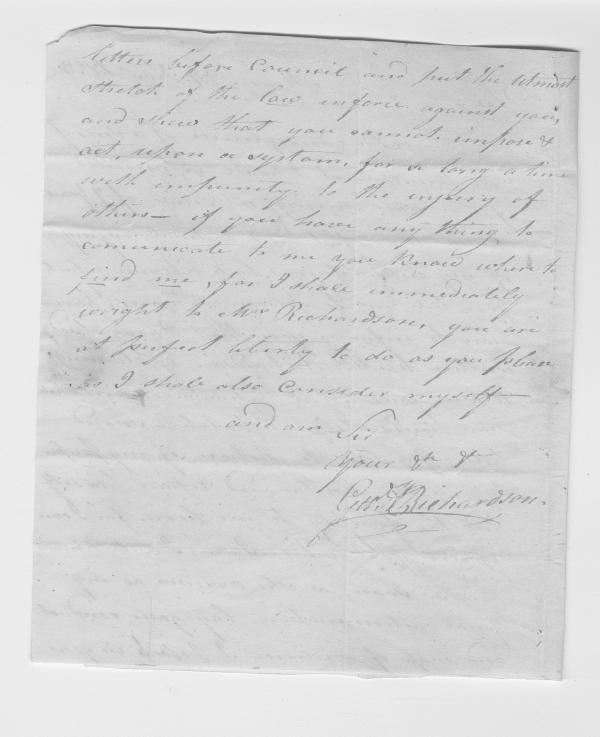 letters before Council and put the utmost
stretch of the law inforce against you,
and shew that you cannot impose &
act, upon a system, for so long a time
with impunity to the injury of
others — if you have any thing to
comunicate to me you know where to
find me, for I shall immediately
wright to Mrs Richardson, you are
at perfect liberty to do as you please
as I shall also consider myself —
and am Sir
Your &c &c
Richardson.